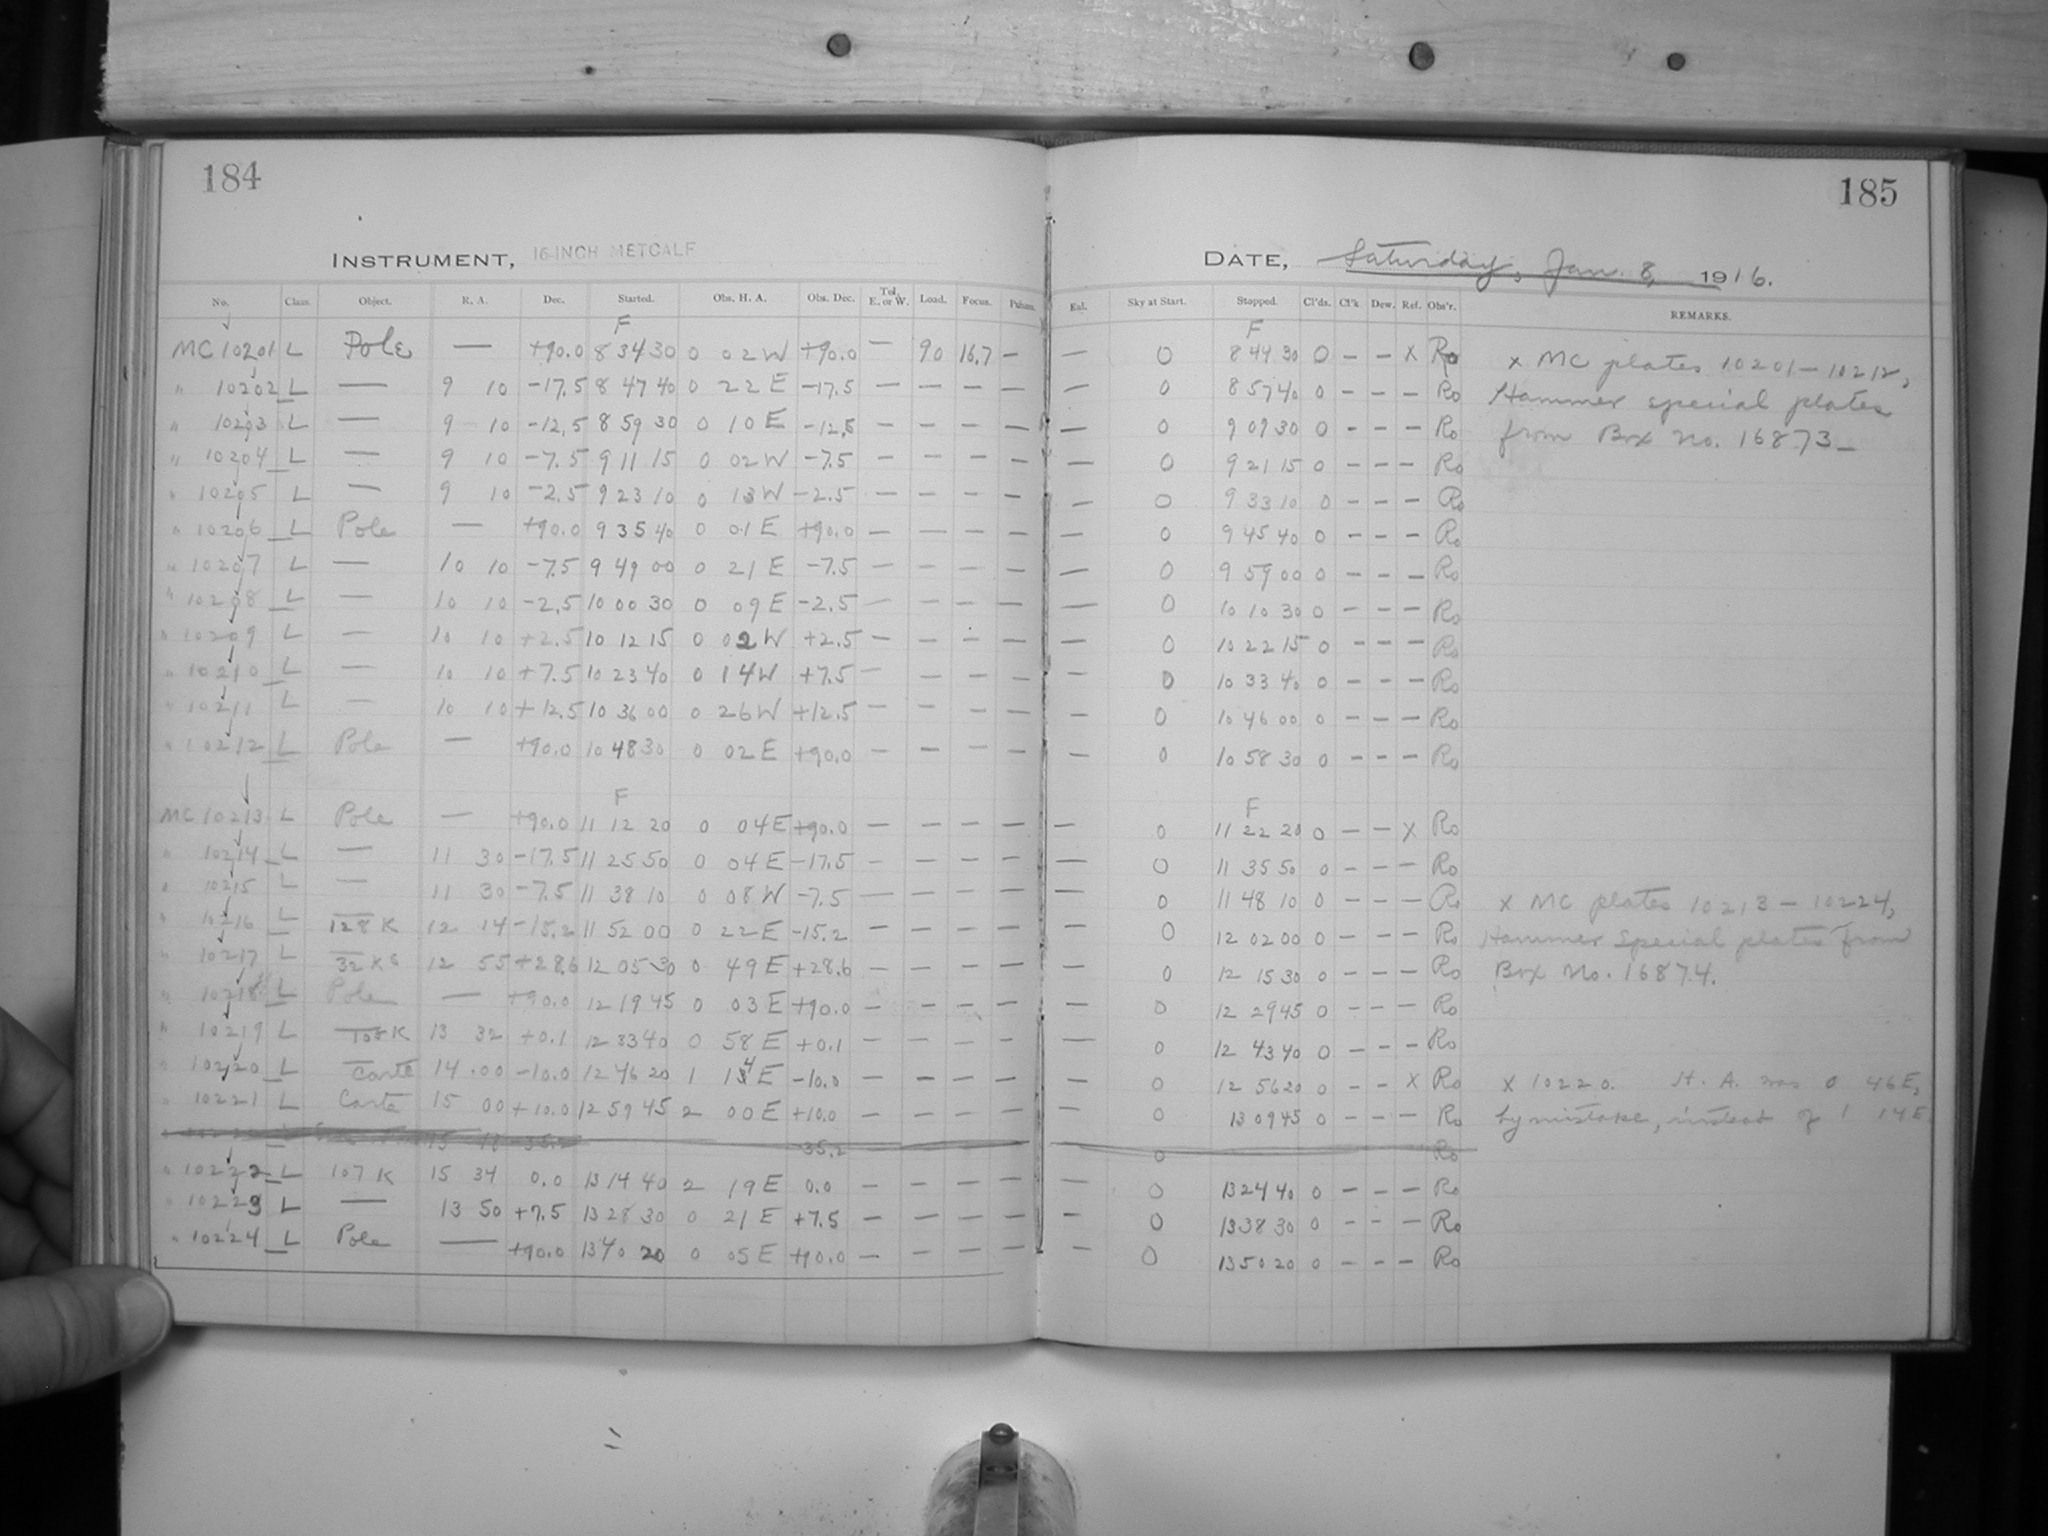 184
INSTRUMENT, 16-INCH METCALF
No. Class. Object. R. A. Dec. Started. Obs. H. A. Obs. Dec. Tel. E. or W. Load. Focus.
F
MC 10201 L Pole — +90.0 8 34 30 0 02 W +90.0 — 90 16.7 —
" 10202 L — 9 10 -17.5 8 47 40 0 22 E -17.5 — — — —
" 10203 L — 9 10 -12.5 8 59 30 0 10 E -12.5 — — — —
" 10204 L — 9 10 -7.5 9 11 15 0 02 W -7.5 — — — —
" 10205 L — 9 10 -2.5 9 23 10 0 13 W -2.5 — — — —
" 10206 L Pole — +90.0 9 35 40 0 01 E +90.0 — — — —
" 10207 L — 10 10 -7.5 9 49 00 0 21 E -7.5 — — — —
" 10208 L — 10 10 -2.5 10 00 30 0 09 E -2.5 — — — —
" 10209 L — 10 10 +2.5 10 12 15 0 02 W +2.5 — — — —
" 10210 L — 10 10 +7.5 10 23 40 0 14 W +7.5 — — — —
" 10211 L — 10 10 +12.5 10 36 00 0 26 W +12.5 — — — —
" 10212 L Pole — +90.0 10 48 30 0 02 E +90.0 — — — —
F
MC 10213 L Pole — +90.0 11 12 20 0 04 E +90.0 — — — —
" 10214 L — 11 30 -17.5 11 25 50 0 04 E -17.5 — — — —
" 10215 L — 11 30 -7.5 11 38 10 0 08 W -7.5 — — — —
" 10216 L 128 K 12 14 -15.2 11 52 00 0 22 E -15.2 — — — —
" 10217 L 12 55 +28.6 12 05 30 0 49 E +28.6 — — — —
" 10218 L Pole — +90.0 12 19 45 0 03 E +90.0 — — — —
" 10219 L 13 32 +0.1 12 33 40 0 58 E +0.1 — — — —
" 10220 L Carte 14 00 -10.0 12 46 20 1 14 E -10.0 — — — —
" 10221 L Carte 15 00 +10.0 12 59 45 2 00 E +10.0 — — — —
-35.2
" 10222 L 107 K 15 34 0.0 13 14 40 2 19 E 0.0 — — — —
" 10223 L — 13 50 +7.5 13 28 30 0 21 E +7.5 — — — —
" 10224 L Pole — +90.0 13 40 20 0 05 E +90.0 — — — —
185
DATE, Saturday, Jan. 8, 1916.
Sky at Start. Stopped. Cl'ds. Cl'k Dew. Ref. Obs'r. REMARKS.
F
— 0 8 44 30 0 — — x Ro x MC plates 10201 — 10212,
— 0 8 57 40 0 — — — Ro Hammer special plates
— 0 9 09 30 0 — — — Ro from Box No. 16873 —
— 0 9 21 15 0 — — — Ro
— 0 9 33 10 0 — — — Ro
— 0 9 45 40 0 — — — Ro
— 0 9 59 00 0 — — — Ro
— 0 10 10 30 0 — — — Ro
— 0 10 22 15 0 — — — Ro
— 0 10 33 40 0 — — — Ro
— 0 10 46 00 0 — — — Ro
— 0 10 58 30 0 — — — Ro
F
— 0 11 22 20 0 — — x Ro
— 0 11 35 50 0 — — — Ro
— 0 11 48 10 0 — — — Ro x MC plates 10213 — 10224,
— 0 12 02 00 0 — — — Ro Hammer Special plates from
— 0 12 15 30 0 — — — Ro Box No. 16874.
— 0 12 29 45 0 — — — Ro
— 0 12 43 40 0 — — — Ro
— 0 12 56 20 0 — — x Ro x 10220. H. A. was 0 46 E,
— 0 13 09 45 0 — — — Ro by mistake, instead of 1 14 E
0 Ro
— 0 13 24 40 0 — — — Ro
— 0 13 38 30 0 — — — Ro
— 0 13 50 20 0 — — — Ro